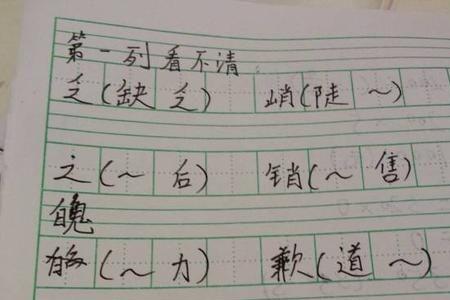 第一列看不清.
乏(缺乏) 峭(陡~)
之(~后) 销(~售)
魄
(~力) 歉(道~)